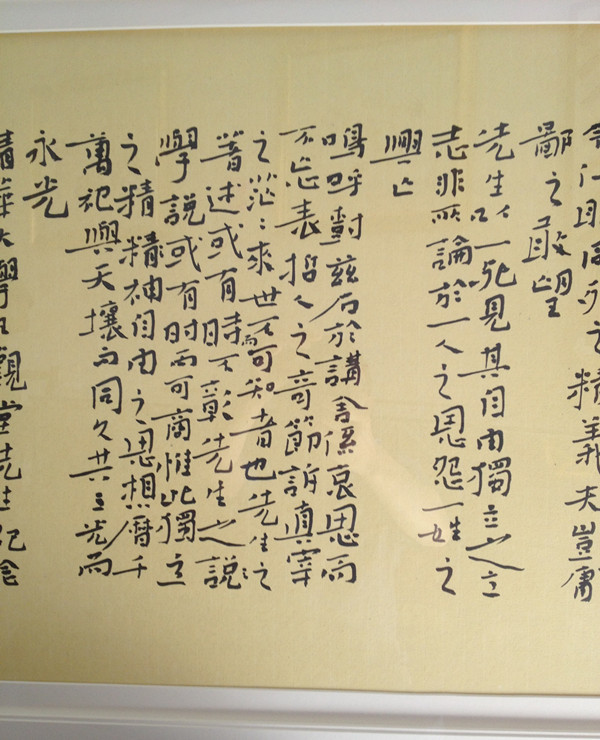 之精義夫豈庸
鄙之敢望
先生以一死見其自由獨立之立
志非所論於一人之恩怨一姓之
興亡
嗚呼對茲石於講舍係哀思而
不忘表招人之奇節訴真宰
之茫〻來世不可知者也先生之
著述或有時而不彰先生之說
學說或有時而可商惟此獨立
之精精神自由之思想曆千
萬祀與天壤而同久共三光而
永光
清華大學王觀堂先生紀念